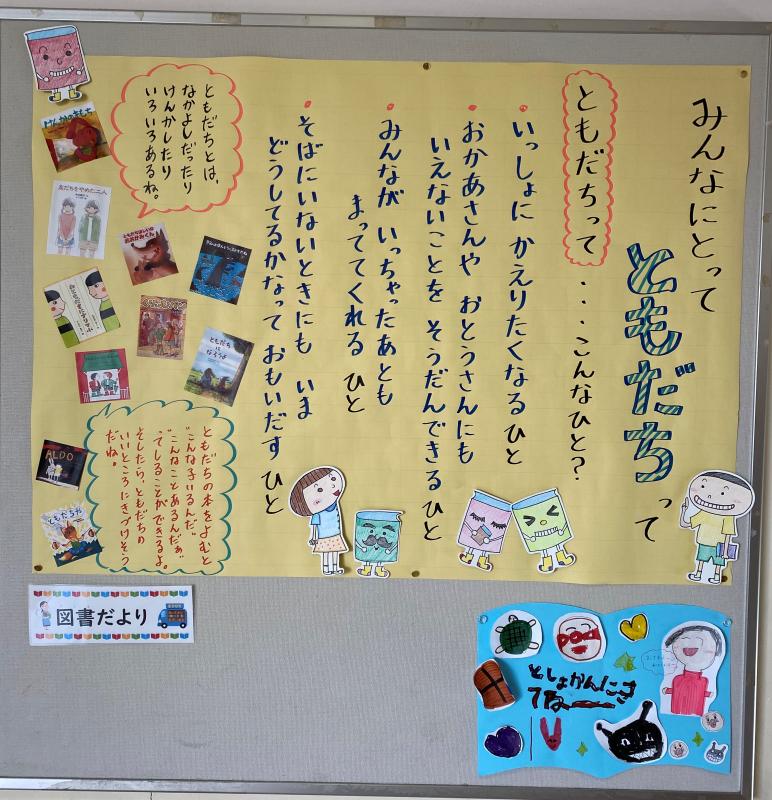 みんなにとって
ともだちって
ともだちって・・・こんなひと？
・いっしょに かえりたくなるひと
・おかあさんや おとうさんにも
いえないことを そうだんできるひと
・みんなが いっちゃったあとも
まっててくれる ひと
・そばにいないときにも いま
どうしてるかなって おもいだす ひと
ともだちとは、
なかよしだったり
けんかしたり
いろいろあるね。
けんかのきもち
友だちをやめた二人
ともだちや
ともだちに
なろうよ
ALDO
ともだちの本をよむと
“こんな子いるんだ”
“こんなことあるんだぁ”
ってしることができるよ。
そしたら、ともだちの
いいところにきづけそう
だね。
図書だより
としょかんにき
てねー